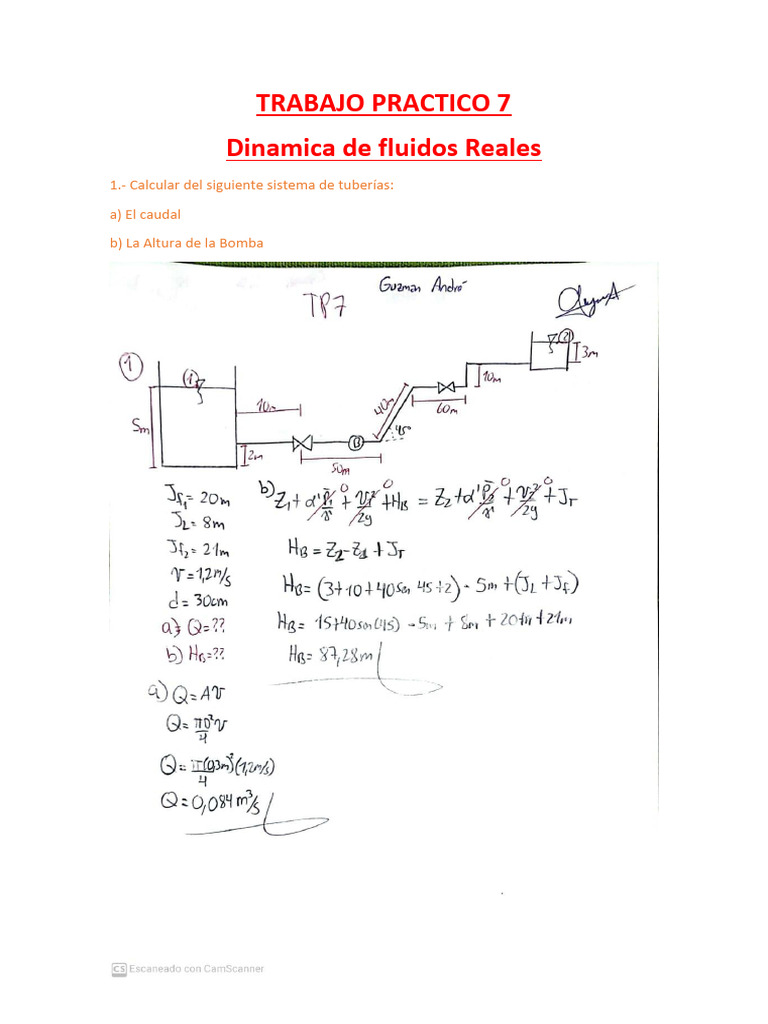 TRABAJO PRACTICO 7
Dinamica de fluidos Reales
1.- Calcular del siguiente sistema de tuberías:
a) El caudal
b) La Altura de la Bomba
Guzman André
TP7
1
(1)
(2)
3m
10m
60m
40m
45°
10m
5m
2m
B
50m
Jf₁ = 20m
JL = 8m
Jf₂ = 21m
V = 1,2m/s
d = 30cm
a) Q = ??
b) HB = ??
b) Z₁ + α' P̄₁/γ + V₁²/2g + HB = Z₂ + α' P̄₂/γ + V₂²/2g + JT
0 0 0 0
HB = Z₂ - Z₁ + JT
HB = (3+10+40sen 45+2) - 5m + (JL + Jf)
HB = 15+40sen(45) - 5m + 8m + 20m + 21m
HB = 87,28m
a) Q = AV
Q = πD²/4 V
Q = π(0,3m)²/4 (1,2m/s)
Q = 0,084 m³/s
CS Escaneado con CamScanner